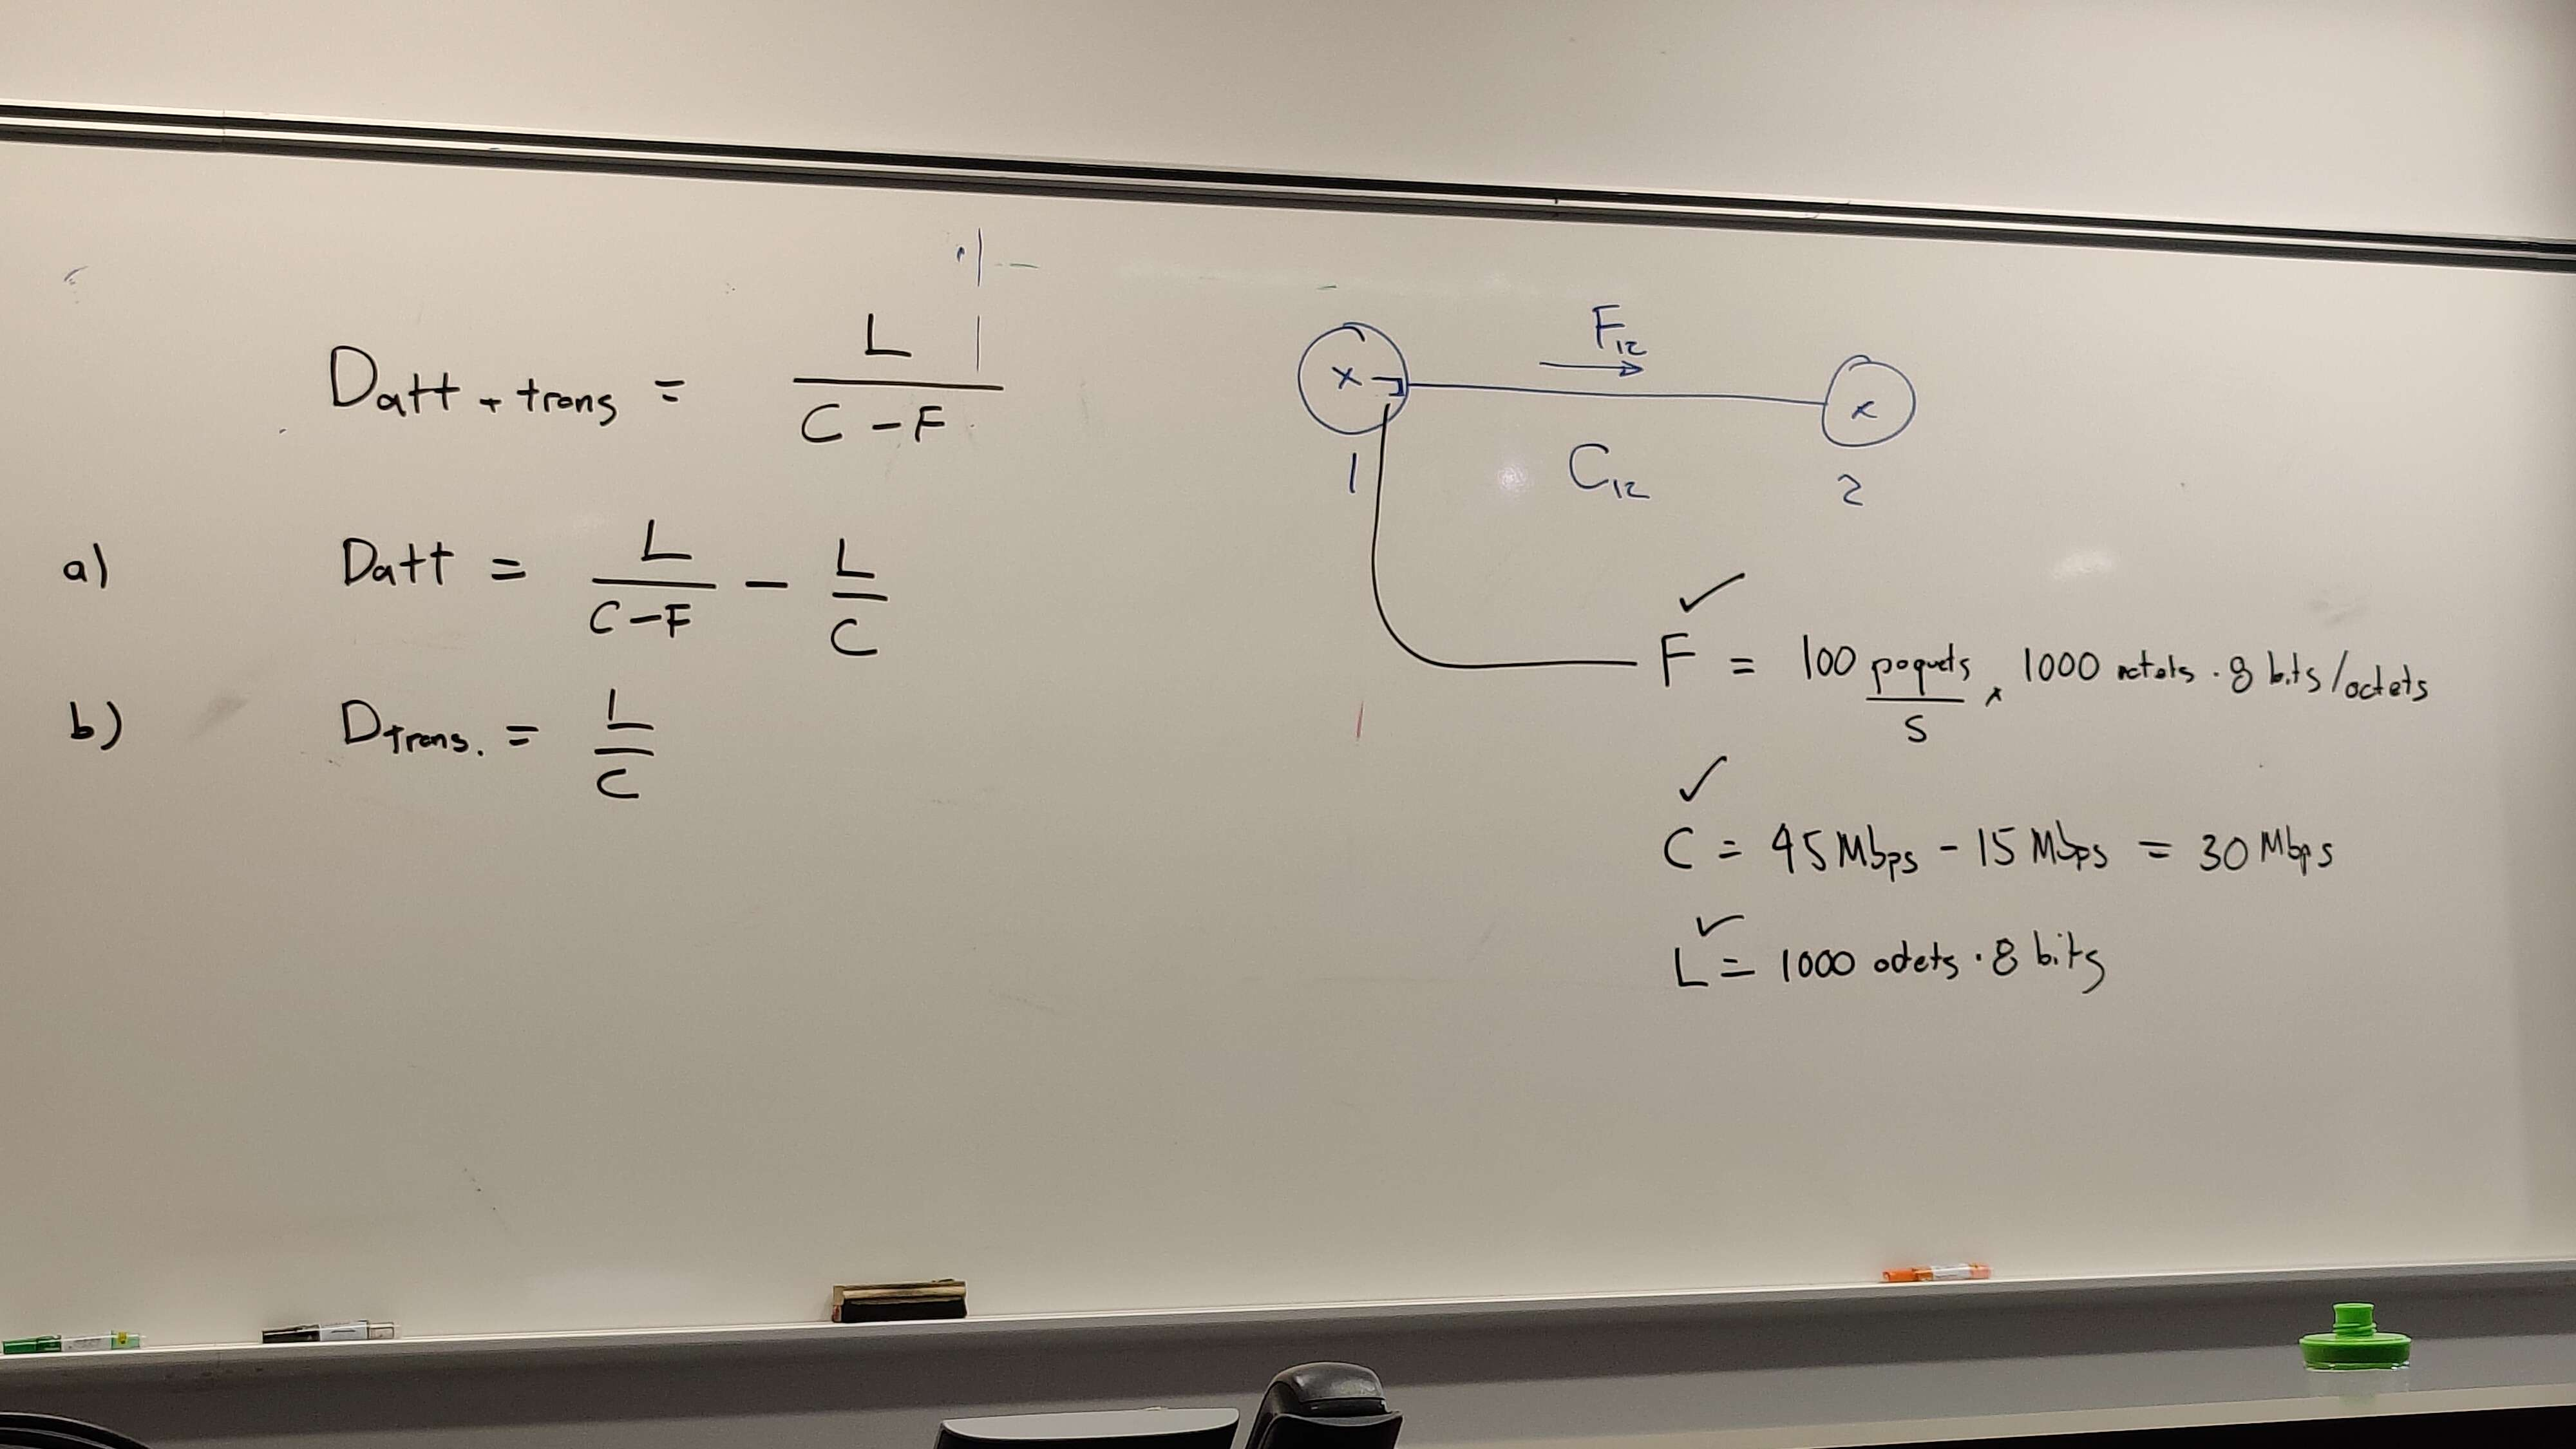 Datt + trans = L / (C - F)
a) Datt = L / (C - F) - L / C
b) Dtrans. = L / C
F12
x x
C12
1 2
F = 100 paquets / s x 1000 octets . 8 bits/octets
C = 45 Mbps - 15 Mbps = 30 Mbps
L = 1000 octets . 8 bits